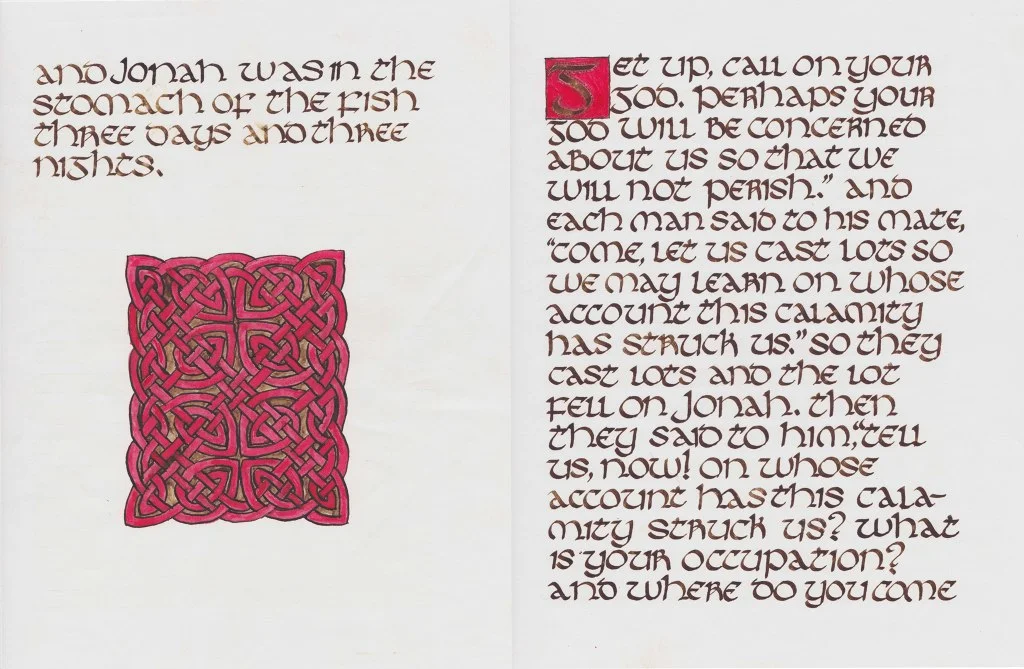 and Jonah was in the
stomach of the fish
three days and three
nights.
Get up, call on your
god. Perhaps your
god will be concerned
about us so that we
will not perish." And
each man said to his mate,
"Come, let us cast lots so
we may learn on whose
account this calamity
has struck us." So they
cast lots and the lot
fell on Jonah. Then
they said to him, "Tell
us, now! On whose
account has this cala-
mity struck us? What
is your occupation?
And where do you come